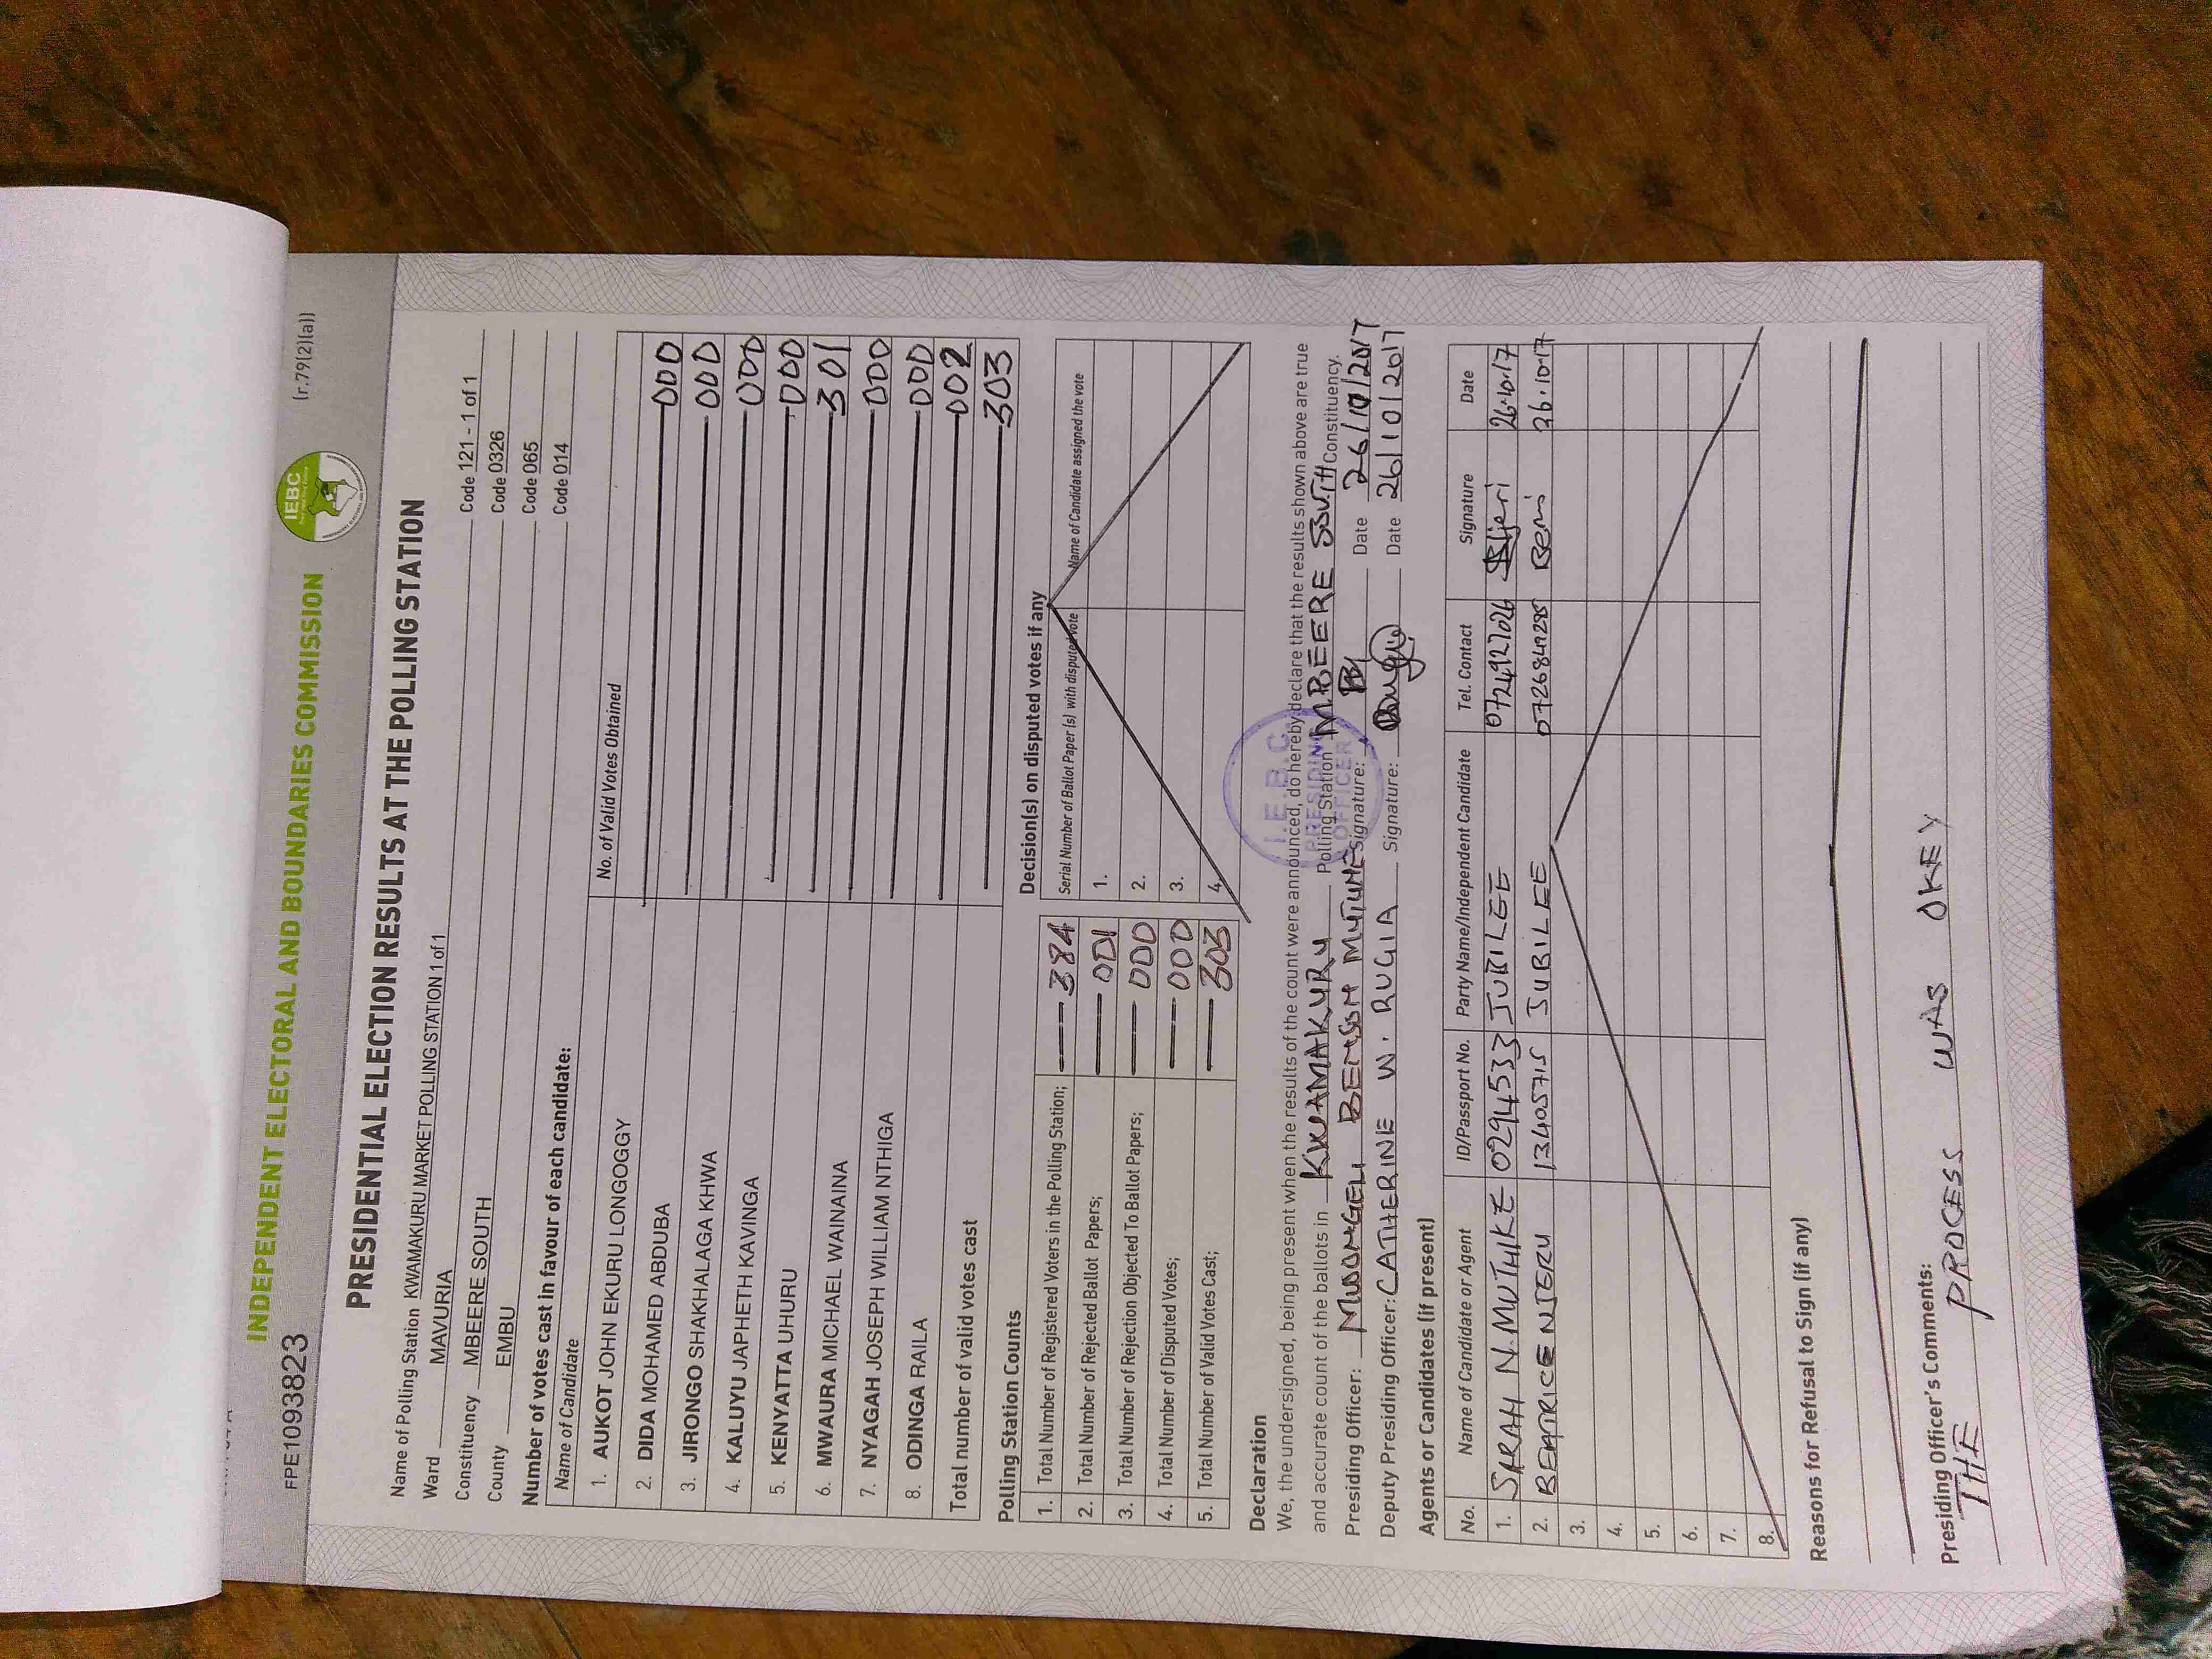 INDEPENDENT ELECTORAL AND BOUNDARIES COMMISSION
IEBC
FPE1093823
(r.79(2)(a))
PRESIDENTIAL ELECTION RESULTS AT THE POLLING STATION
Name of Polling Station KWAMAKURU MARKET POLLING STATION 1 of 1 Code 121 - 1 of 1
Ward MAVURIA Code 0326
Constituency MBEERE SOUTH Code 065
County EMBU Code 014
Number of votes cast in favour of each candidate:
Name of Candidate No. of Valid Votes Obtained
1. AUKOT JOHN EKURU LONGOGGY 000
2. DIDA MOHAMED ABDUBA 000
3. JIRONGO SHAKHALAGA KHWA 000
4. KALUYU JAPHETH KAVINGA 000
5. KENYATTA UHURU 301
6. MWAURA MICHAEL WAINAINA 000
7. NYAGAH JOSEPH WILLIAM NTHIGA 000
8. ODINGA RAILA 002
Total number of valid votes cast 303
Polling Station Counts
1. Total Number of Registered Voters in the Polling Station; 384
2. Total Number of Rejected Ballot Papers; 001
3. Total Number of Rejection Objected To Ballot Papers; 000
4. Total Number of Disputed Votes; 000
5. Total Number of Valid Votes Cast; 303
Decision(s) on disputed votes if any
Serial Number of Ballot Paper (s) with disputed vote Name of Candidate assigned the vote
1.
2.
3.
4.
Declaration
We, the undersigned, being present when the results of the count were announced, do hereby declare that the results shown above are true
and accurate count of the ballots in KWAMAKURU Polling Station MBEERE SOUTH Constituency.
Presiding Officer: MWONGELI BENSON MUTUNE Signature: Date 26/10/2017
Deputy Presiding Officer: CATHERINE W. RUGIA Signature: Date 26/10/2017
I.E.B.C.
PRESIDING
OFFICER
Agents or Candidates (if present)
No. Name of Candidate or Agent ID/Passport No. Party Name/Independent Candidate Tel. Contact Signature Date
1. SARAH N. MUTHIKE 0294533 JUBILEE 0724927026 26.10.17
2. BEATRICE NJERU 13405715 JUBILEE 0726849285 26.10.17
3.
4.
5.
6.
7.
8.
Reasons for Refusal to Sign (if any)
Presiding Officer's Comments:
THE PROCESS WAS OKEY